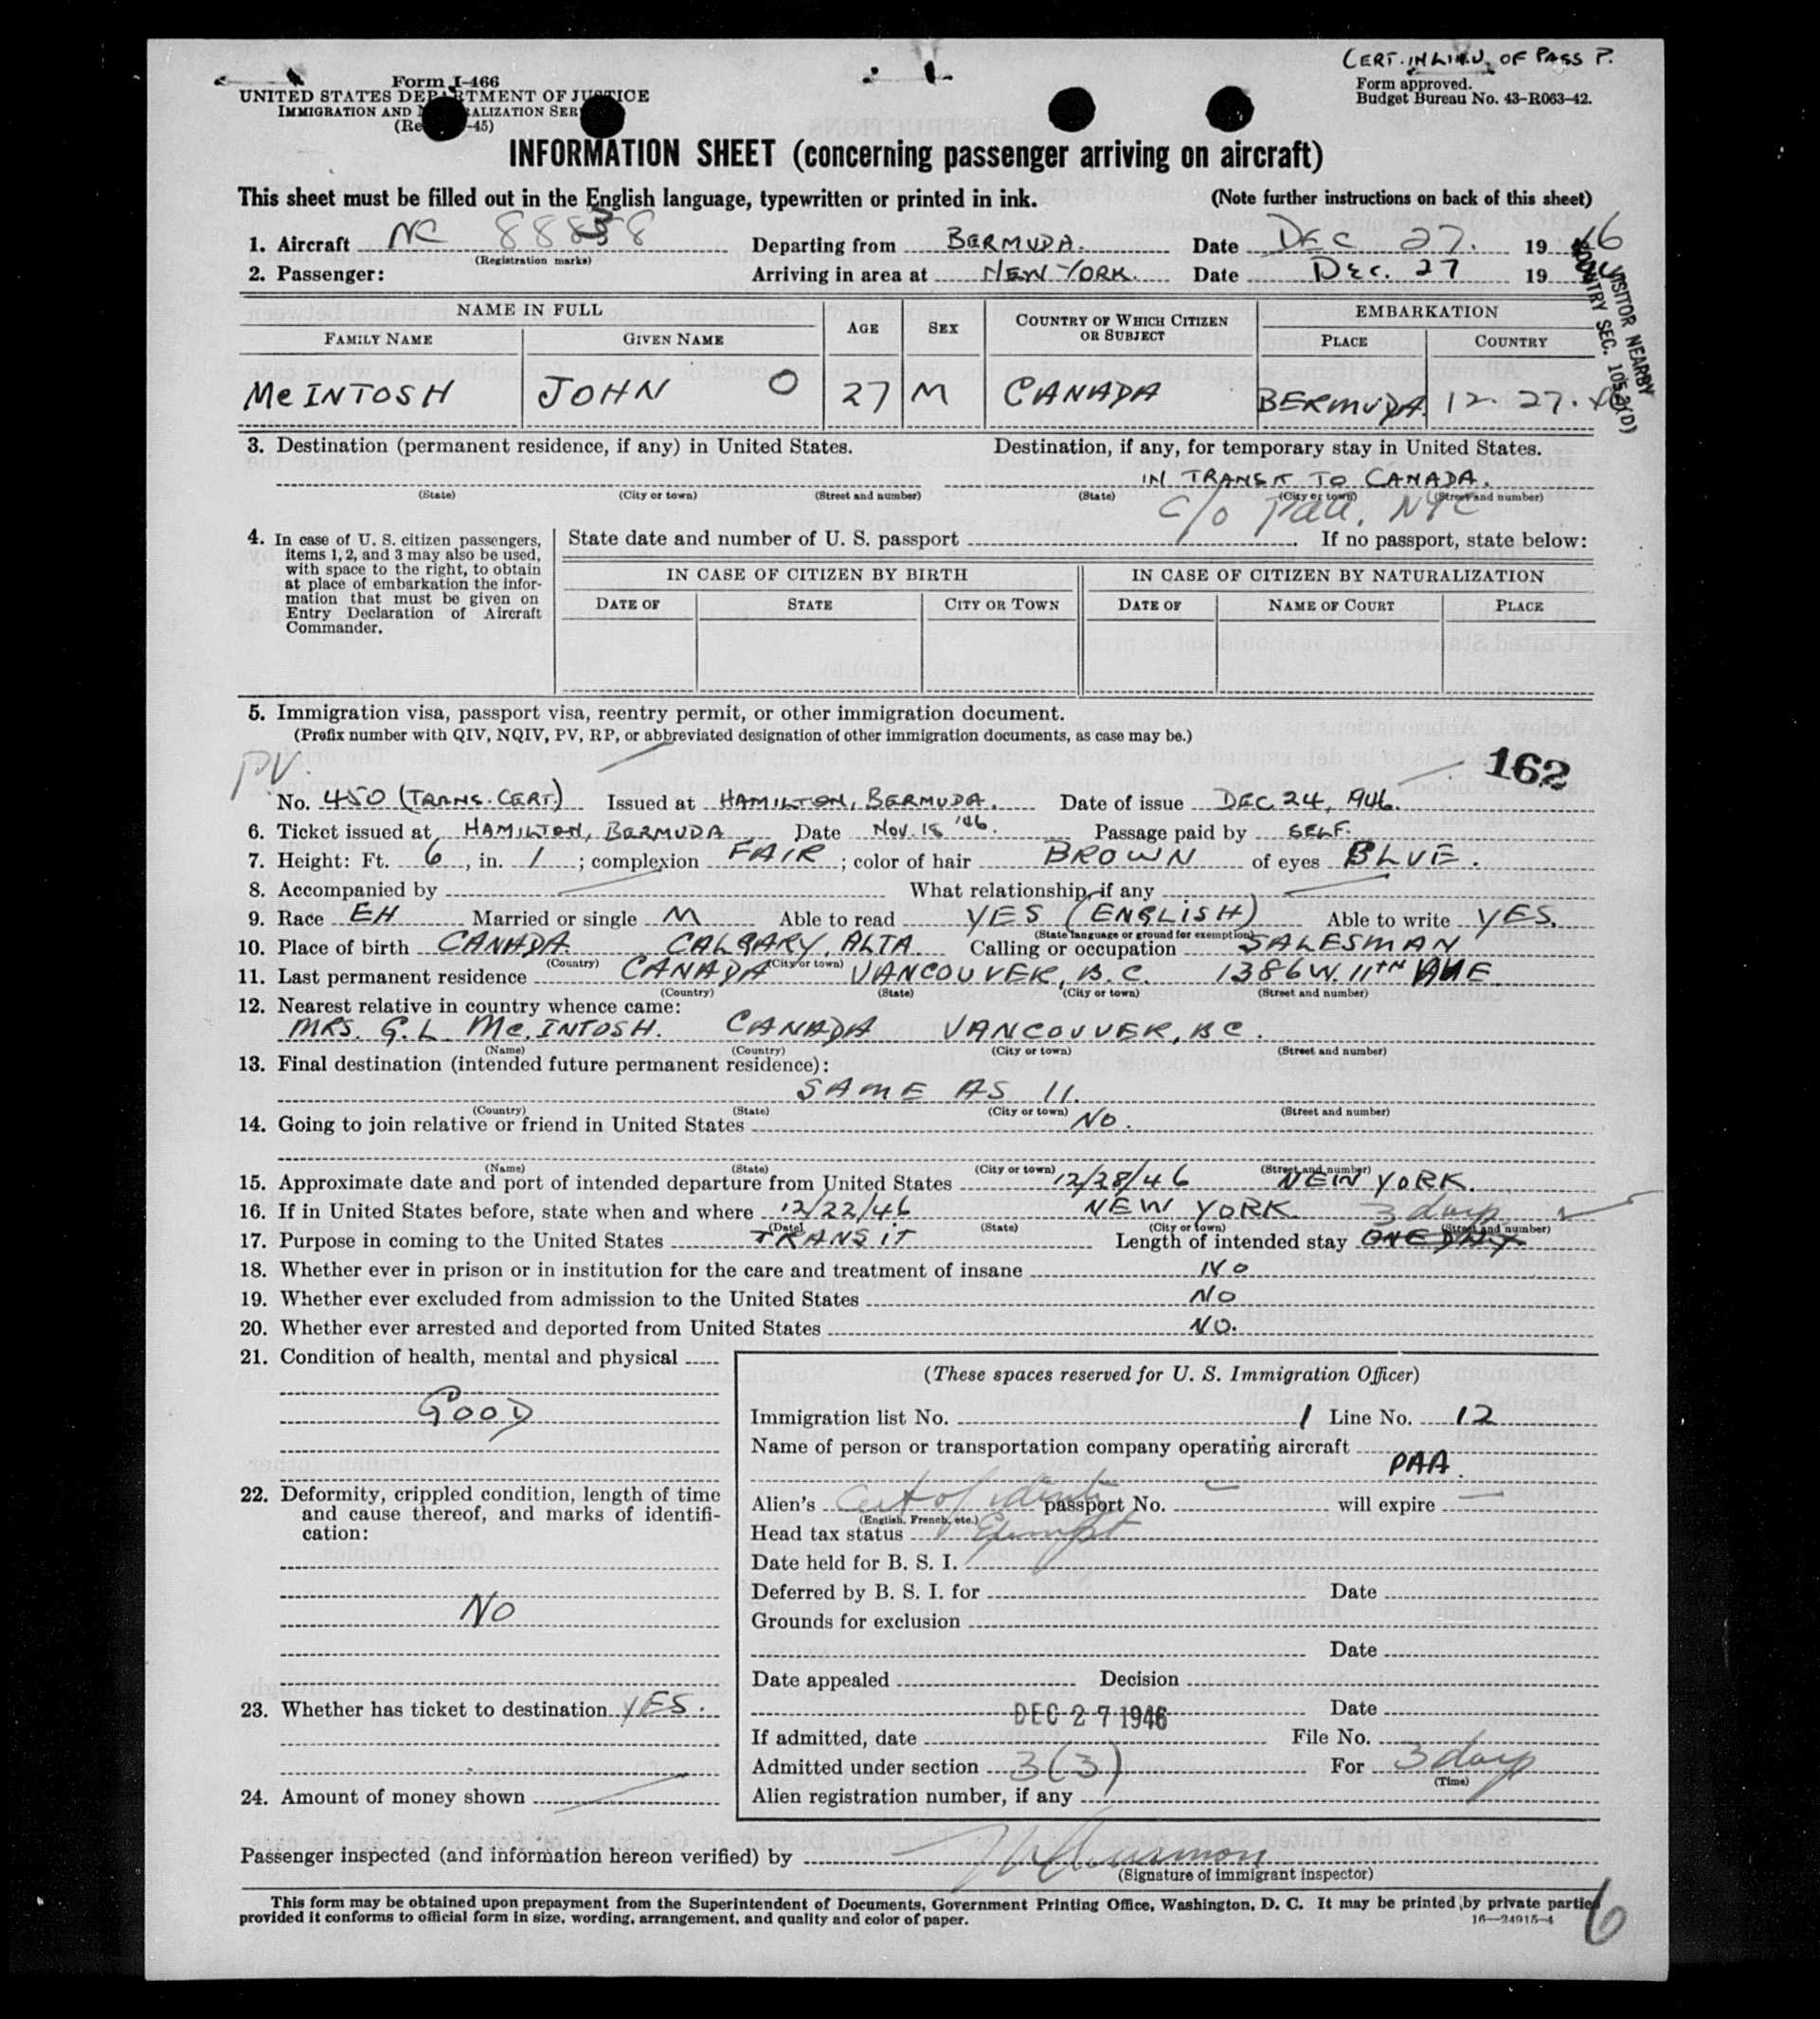 CERT. IN LIEU OF PASS P.
Form I-466
UNITED STATES DEPARTMENT OF JUSTICE
IMMIGRATION AND NATURALIZATION SER
(Re -45)
Form approved.
Budget Bureau No. 43-R063-42.
INFORMATION SHEET (concerning passenger arriving on aircraft)
This sheet must be filled out in the English language, typewritten or printed in ink. (Note further instructions on back of this sheet)
1. Aircraft NC 88838 Departing from BERMUDA. Date DEC 27. 19 46
(Registration marks)
2. Passenger: Arriving in area at NEW YORK. Date DEC. 27 19
VISITOR NEARBY
COUNTRY SEC. 105.3(D)
NAME IN FULL AGE SEX COUNTRY OF WHICH CITIZEN OR SUBJECT EMBARKATION
FAMILY NAME GIVEN NAME PLACE COUNTRY
Mc INTOSH JOHN O 27 M CANADA BERMUDA 12. 27.
3. Destination (permanent residence, if any) in United States. Destination, if any, for temporary stay in United States.
IN TRANSIT TO CANADA.
(State) (City or town) (Street and number) (State) (City or town) (Street and number)
c/o Paa, NYC
4. In case of U. S. citizen passengers, items 1, 2, and 3 may also be used, with space to the right, to obtain at place of embarkation the information that must be given on Entry Declaration of Aircraft Commander.
State date and number of U. S. passport If no passport, state below:
IN CASE OF CITIZEN BY BIRTH IN CASE OF CITIZEN BY NATURALIZATION
DATE OF STATE CITY OR TOWN DATE OF NAME OF COURT PLACE
5. Immigration visa, passport visa, reentry permit, or other immigration document.
(Prefix number with QIV, NQIV, PV, RP, or abbreviated designation of other immigration documents, as case may be.)
PV 162
No. 450 (TRANS. CERT.) Issued at HAMILTON, BERMUDA. Date of issue DEC 24, 1946.
6. Ticket issued at HAMILTON, BERMUDA Date NOV. 18 '46. Passage paid by SELF.
7. Height: Ft. 6, in. 1; complexion FAIR; color of hair BROWN of eyes BLUE.
8. Accompanied by What relationship, if any
9. Race EH Married or single M Able to read YES (ENGLISH) Able to write YES.
(State language or ground for exemption)
10. Place of birth CANADA. CALGARY, ALTA. Calling or occupation SALESMAN
(Country) (City or town)
11. Last permanent residence CANADA VANCOUVER, B.C. 1386 W. 11TH AVE.
(Country) (State) (City or town) (Street and number)
12. Nearest relative in country whence came:
MRS. G.L. Mc.INTOSH. CANADA VANCOUVER, BC.
(Name) (Country) (City or town) (Street and number)
13. Final destination (intended future permanent residence):
SAME AS 11.
(Country) (State) (City or town) (Street and number)
14. Going to join relative or friend in United States NO.
(Name) (State) (City or town) (Street and number)
15. Approximate date and port of intended departure from United States 12/28/46 NEW YORK.
16. If in United States before, state when and where 12/22/46 NEW YORK 3 days
(Date) (State) (City or town) (Street and number)
17. Purpose in coming to the United States TRANSIT Length of intended stay ONE DAY
18. Whether ever in prison or in institution for the care and treatment of insane NO
19. Whether ever excluded from admission to the United States NO
20. Whether ever arrested and deported from United States NO.
21. Condition of health, mental and physical
GOOD
22. Deformity, crippled condition, length of time and cause thereof, and marks of identification:
NO
23. Whether has ticket to destination YES.
24. Amount of money shown
(These spaces reserved for U. S. Immigration Officer)
Immigration list No. 1 Line No. 12
Name of person or transportation company operating aircraft
PAA.
Alien's Cert of identi passport No. will expire
(English, French, etc.)
Head tax status Exempt
Date held for B. S. I.
Deferred by B. S. I. for Date
Grounds for exclusion
Date
Date appealed Decision
DEC 27 1946 Date
If admitted, date File No.
Admitted under section 3(3) For 3 days
(Time)
Alien registration number, if any
Passenger inspected (and information hereon verified) by
(Signature of immigrant inspector)
This form may be obtained upon prepayment from the Superintendent of Documents, Government Printing Office, Washington, D. C. It may be printed by private parties
provided it conforms to official form in size, wording, arrangement, and quality and color of paper. 16—24915-4
6